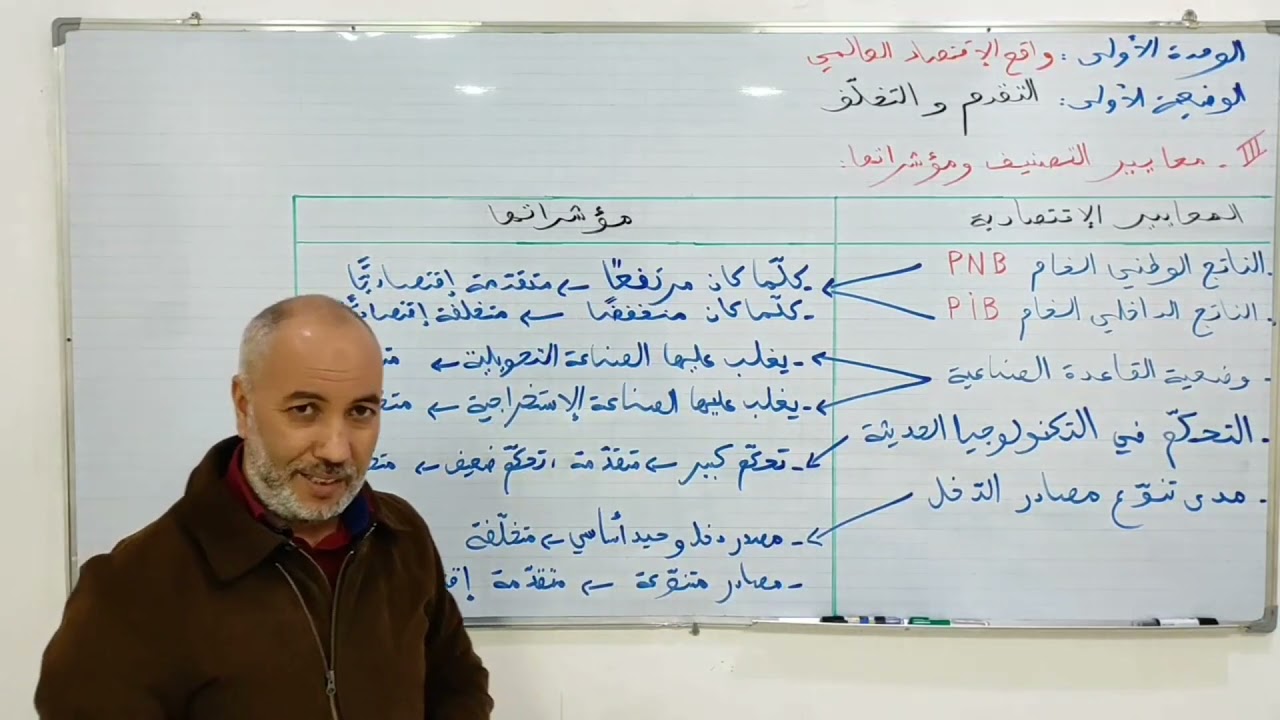 الوحدة الأولى: واقع الإقتصاد العالمي
الوضعية الأولى: التقدم و التخلّف
III - معايير التصنيف ومؤشراتها:
المعايير الإقتصادية
مؤشراتها
- الناتج الوطني الخام PNB
- الناتج الداخلي الخام PiB
- كلّما كان مرتفعًا ← متقدمة إقتصاديًّا
- كلّما كان منخفضًا ← متخلفة
- وضعية القاعدة الصناعية
- يغلب عليها الصناعة التحويلية ←
- يغلب عليها الصناعة الإستخراجية ←
- التحكّم في التكنولوجيا الحديثة
- تحكّم كبير ← متقدّمة ، تحكّم ضعيف ←
- مدى تنوّع مصادر الدّخل
- مصدر دخل وحيد أساسي ← متخلّفة
- مصادر متنوّعة ← متقدّمة